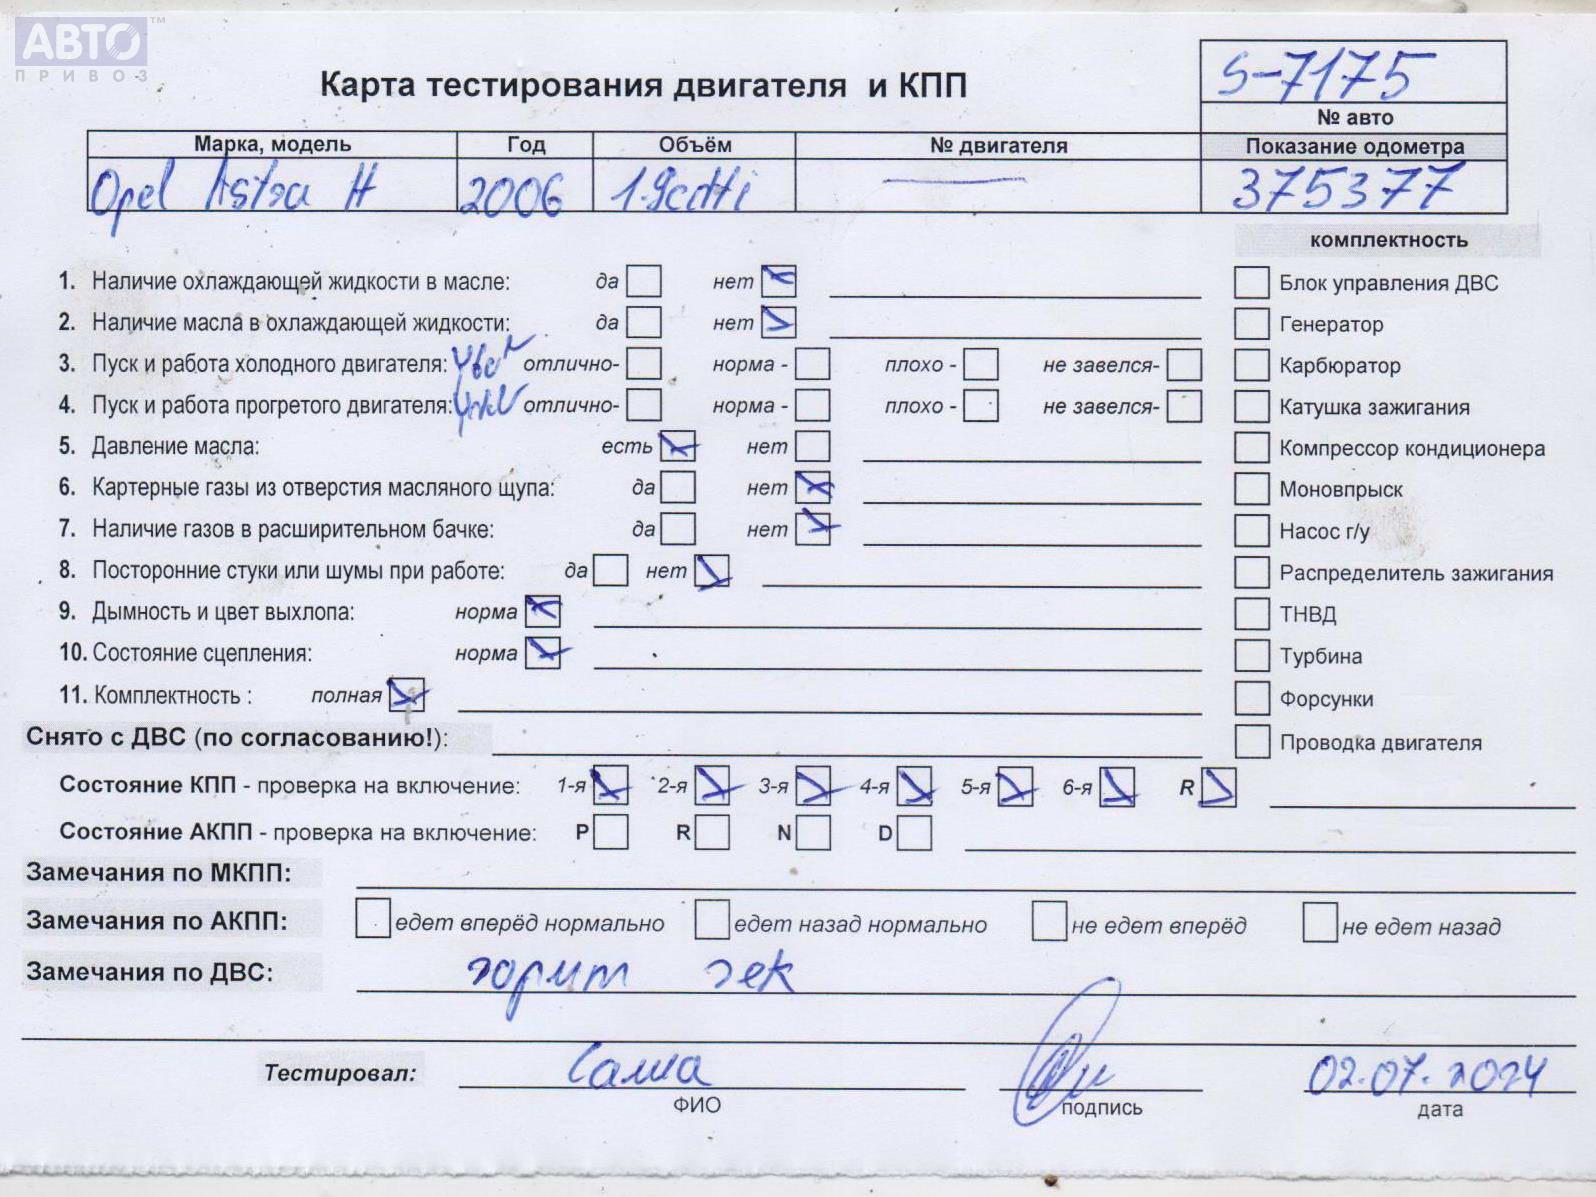 АВТО™
ПРИВОЗ
S-7175
Карта тестирования двигателя и КПП
№ авто
Марка, модель Год Объём № двигателя Показание одометра
Opel Astra H 2006 1.9cdti — 375377
комплектность
1. Наличие охлаждающей жидкости в масле: да нет
Блок управления ДВС
2. Наличие масла в охлаждающей жидкости: да нет
Генератор
3. Пуск и работа холодного двигателя: отлично- норма - плохо - не завелся-
Карбюратор
4. Пуск и работа прогретого двигателя: отлично- норма - плохо - не завелся-
Катушка зажигания
5. Давление масла: есть нет
Компрессор кондиционера
6. Картерные газы из отверстия масляного щупа: да нет
Моновпрыск
7. Наличие газов в расширительном бачке: да нет
Насос г/у
8. Посторонние стуки или шумы при работе: да нет
Распределитель зажигания
9. Дымность и цвет выхлопа: норма
ТНВД
10. Состояние сцепления: норма
Турбина
11. Комплектность : полная
Форсунки
Снято с ДВС (по согласованию!):
Проводка двигателя
Состояние КПП - проверка на включение: 1-я 2-я 3-я 4-я 5-я 6-я R
Состояние АКПП - проверка на включение: P R N D
Замечания по МКПП:
Замечания по АКПП: едет вперёд нормально едет назад нормально не едет вперёд не едет назад
Замечания по ДВС: горит чек
Тестировал: Саша 02.07.2024
ФИО подпись дата